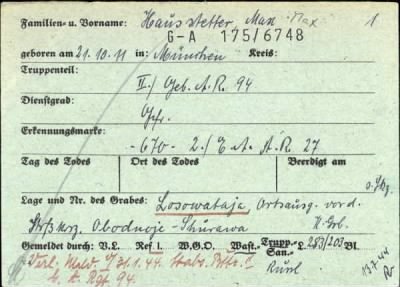 Familien- u. Vorname: Hausstetter, Max Max 1
G-A 175/6748
geboren am 21.10.11 in: München Kreis:
Truppenteil:
II./ Geb. A.R. 94
Dienstgrad:
Gefr.
Erkennungsmarke:
-670- 2./ E. A. A.R. 27
Tag des Todes Ort des Todes Beerdigt am
Lage und Nr. des Grabes: Losowataja, Ortsausg. nord.
Obodnoje - Shurawa
Gemeldet durch: V.L. Ref 1. W.G.O. Wast.- Trupp.- San.- L. 283/203 Bl.
Verl. Meld. v. 31.1.44 Stabs. Bttr. II
Geb. A. Rgt. 94. Russl. 13.7.44